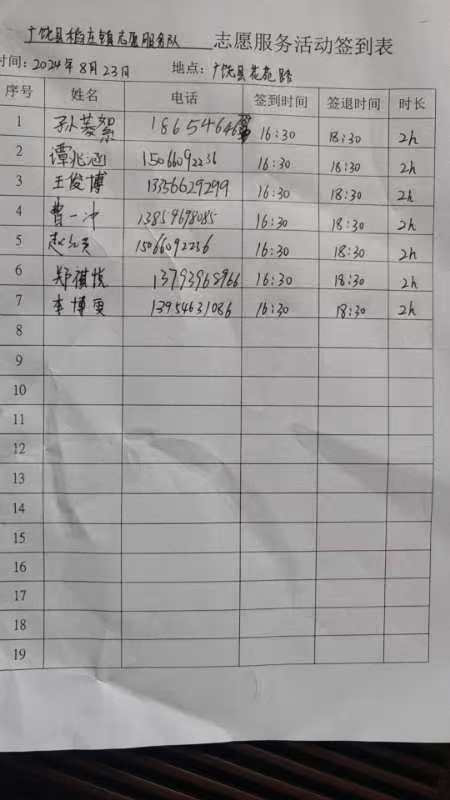 广饶县稻庄镇志愿服务队 志愿服务活动签到表
时间:2024年8月23日 地点:广饶县花苑路
序号 姓名 电话 签到时间 签退时间 时长
1 孙綦絮 18654646 16:30 18:30 2h
2 谭兆涵 15066092236 16:30 18:30 2h
3 王俊博 13356629299 16:30 18:30 2h
4 曹一冲 13859678085 16:30 18:30 2h
5 15066092236 16:30 18:30 2h
6 郑祺悦 13793965966 16:30 18:30 2h
7 李博雯 13954631086 16:30 18:30 2h
8
9
10
11
12
13
14
15
16
17
18
19